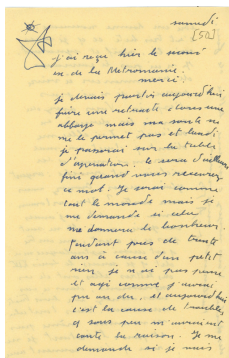 samedi
[50]
j'ai reçu hier le mons
ex. de la Métromanie.
merci.
je devais partir aujourd'hui
faire une retraite dans une
abbaye mais ma santé ne
me le permet pas et lundi
je passerai sur la table
d'opération. Ce sera d'ailleurs
fini quand vous recevrez
ce mot. Je serai comme
tout le monde mais je
me demande si cela
me donnera le bonheur.
Pendant près de trente
ans à cause d'un petit
rien je n'ai pas pensé
et agi comme j'aurai
pu ou dû, et aujourd'hui
c'est la cause de troubles,
qui sous peu m'auraient
coûté la raison. Je me
demande si je suis